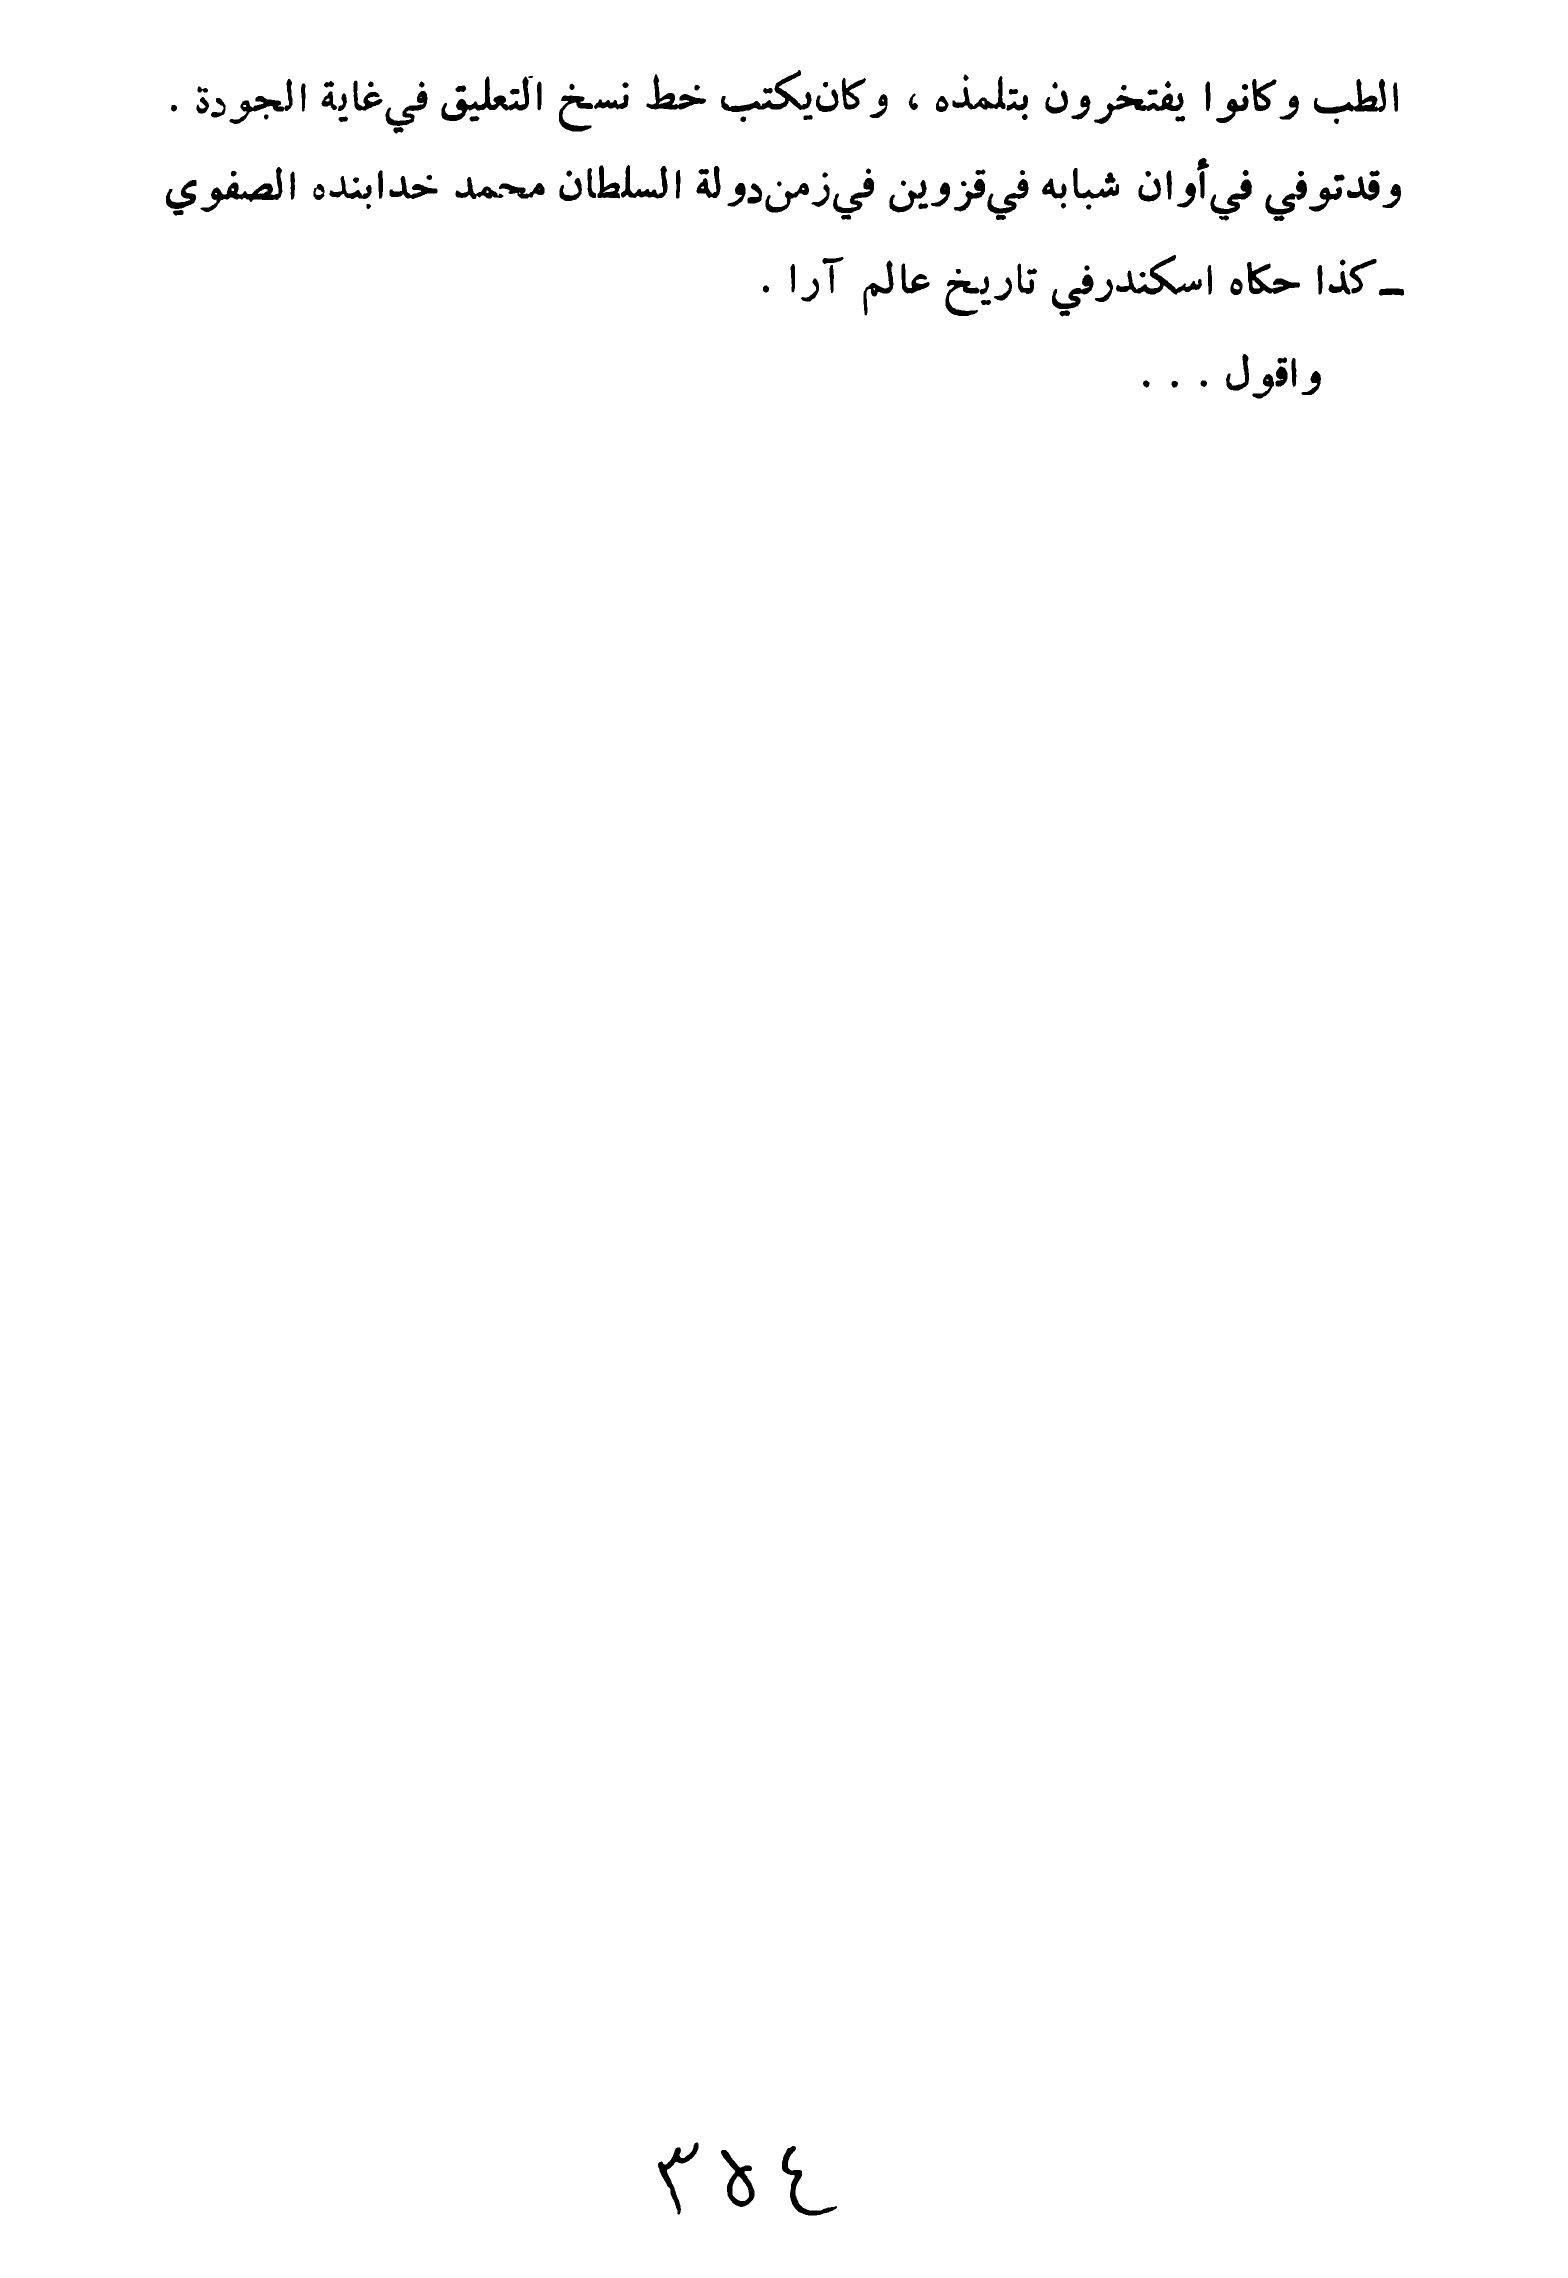 الطب وكانوا يفتخرون بتلمذه ، وكان يكتب خط نسخ التعليق في غاية الجودة .
وقد توفي في أوان شبابه في قزوين في زمن دولة السلطان محمد خدابنده الصفوي
ـ كذا حكاه اسكندر في تاريخ عالم آرا .
واقول . . .
٣٥٤